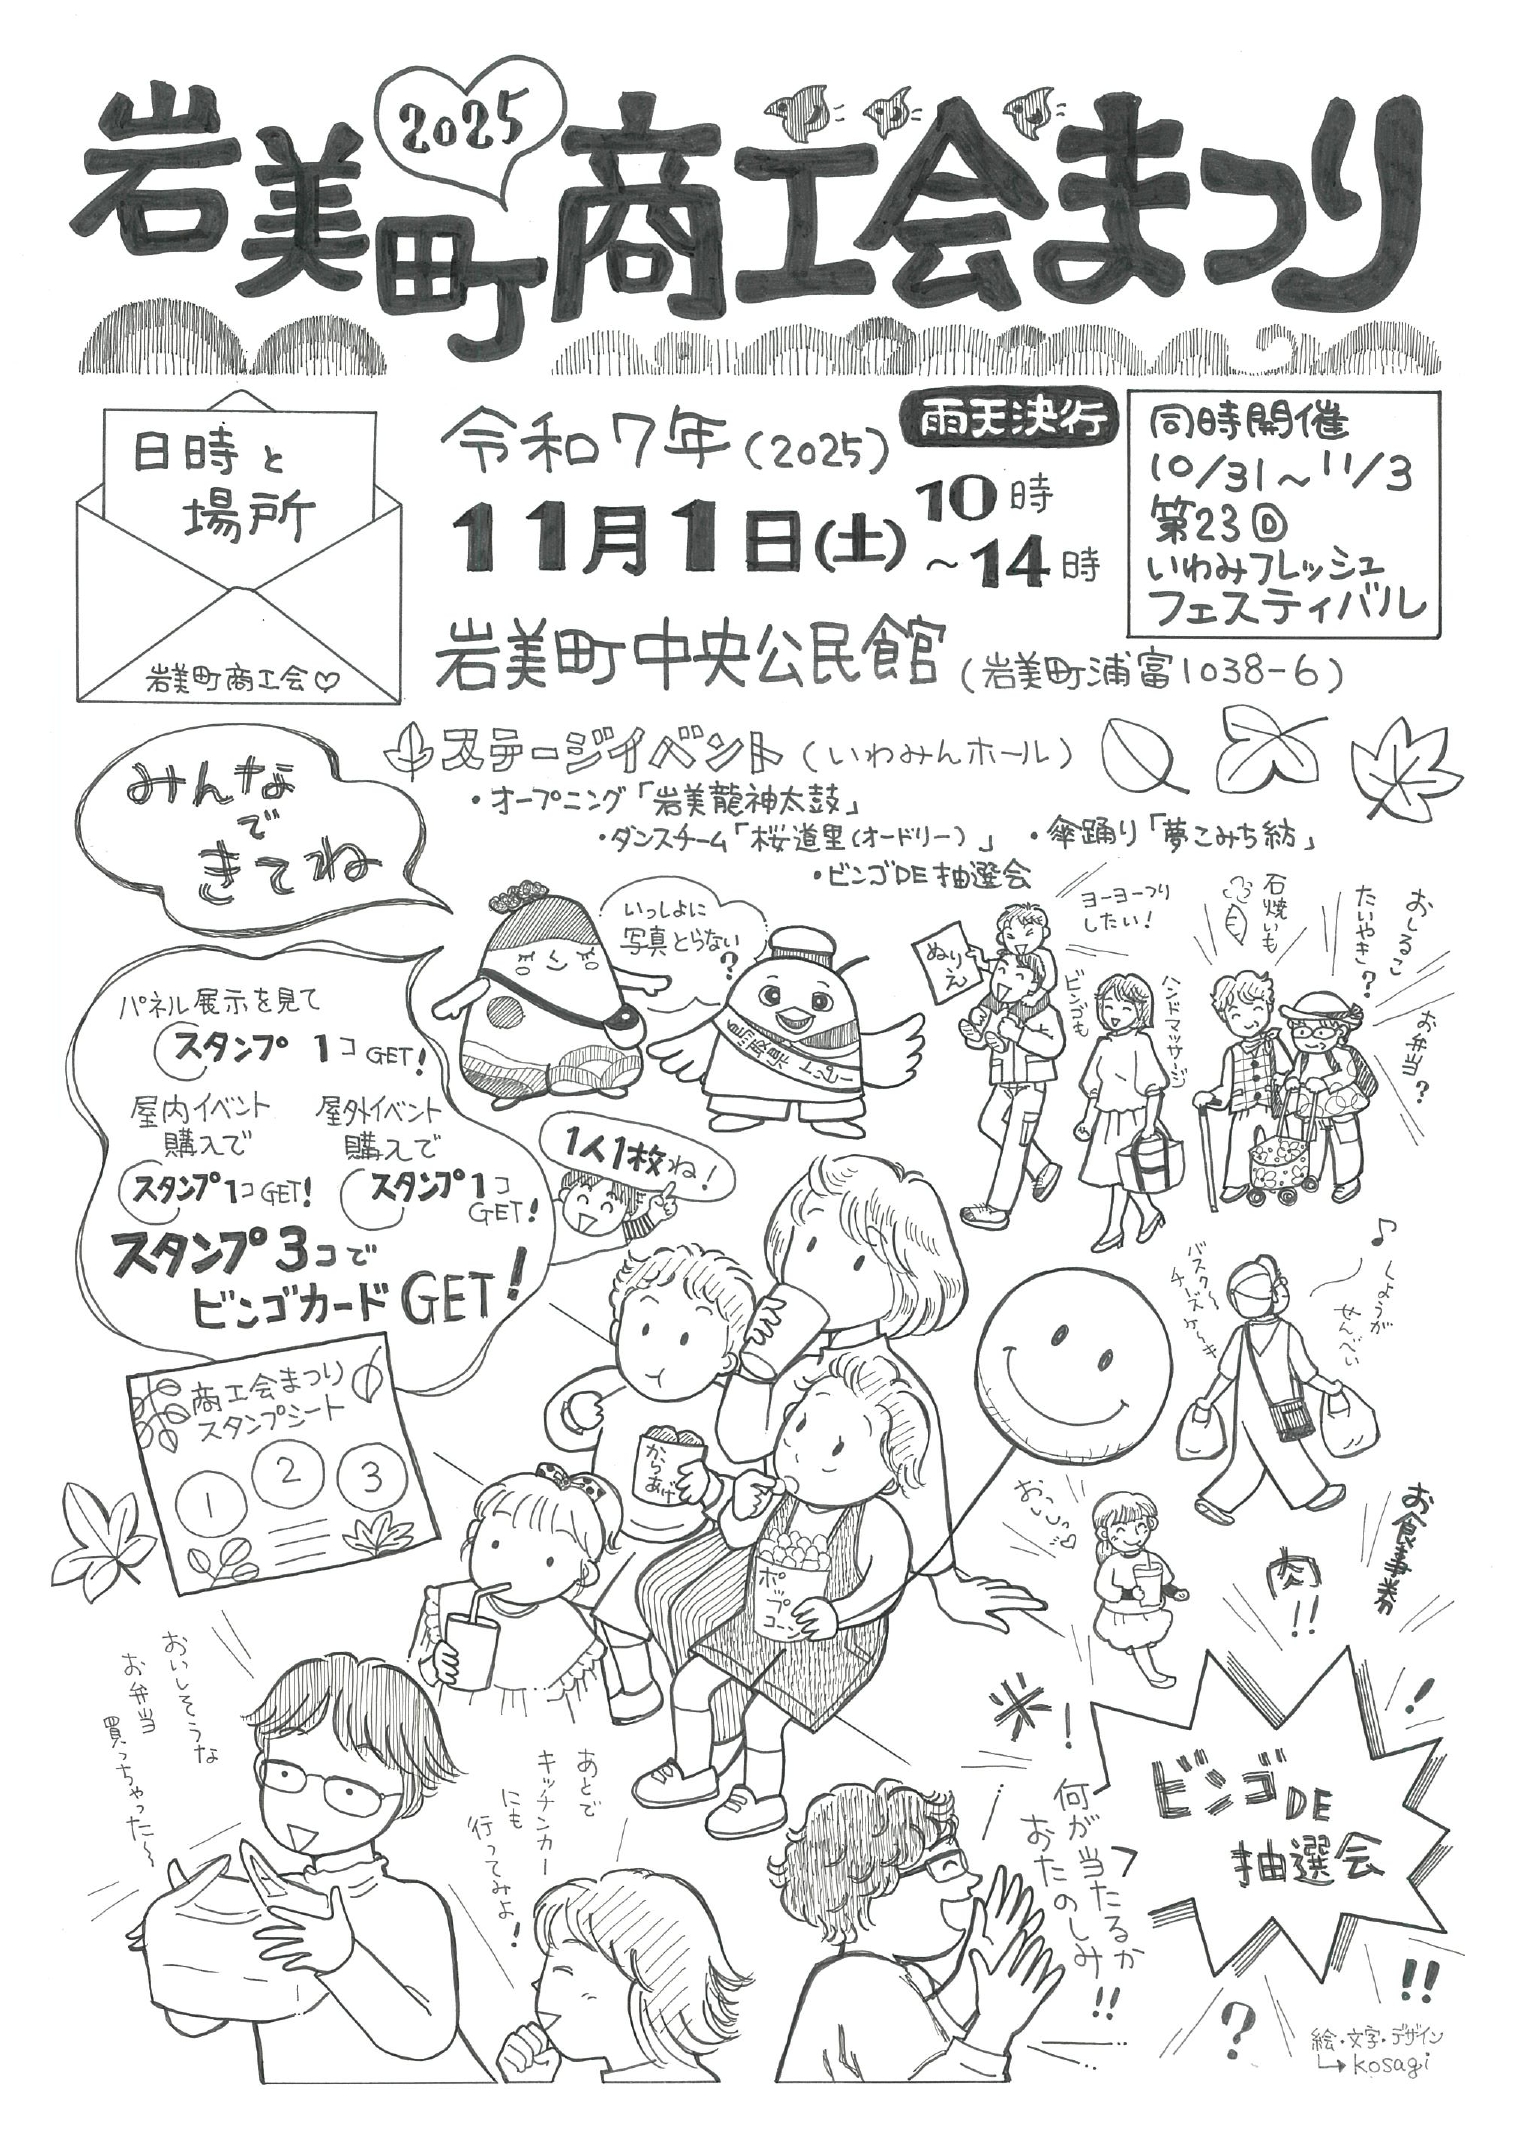 2025
岩美町商工会まつり
日時と
場所
岩美町商工会♡
令和7年(2025)
雨天決行
11月1日(土)
10時
~14時
岩美町中央公民館(岩美町浦富1038-6)
同時開催
10/31~11/3
第23回
いわみフレッシュ
フェスティバル
みんな
で
きてね
ステージイベント(いわみんホール)
・オープニング「岩美龍神太鼓」
・ダンスチーム「桜道里(オードリー)」
・傘踊り「夢こみち紡」
・ビンゴDE抽選会
いっしょに
写真とらない
?
鳥取県
パネル展示を見て
スタンプ1コGET!
屋内イベント
購入で
スタンプ1コGET!
屋外イベント
購入で
スタンプ1コ
GET!
スタンプ3コで
ビンゴカードGET!
1人1枚ね!
ぬりえ
ヨーヨーつり
したい!
ビンゴも
ハンドマッサージ
石焼いも
たいやき?
おしるこ
お弁当?
商工会まつり
スタンプシート
1
2
3
からあげ
ポップコーン
バスクチーズケーキ
♪しょうが
せんべい
おこっ♡
お食事券
肉!!
米!
おいしそうな
お弁当
買っちゃった~
あとで
キッチンカー
にも
行ってみよ!
何が当たるか
おたのしみ!!
ビンゴDE
抽選会
!
!!
?
絵・文字・デザイン
kosagi